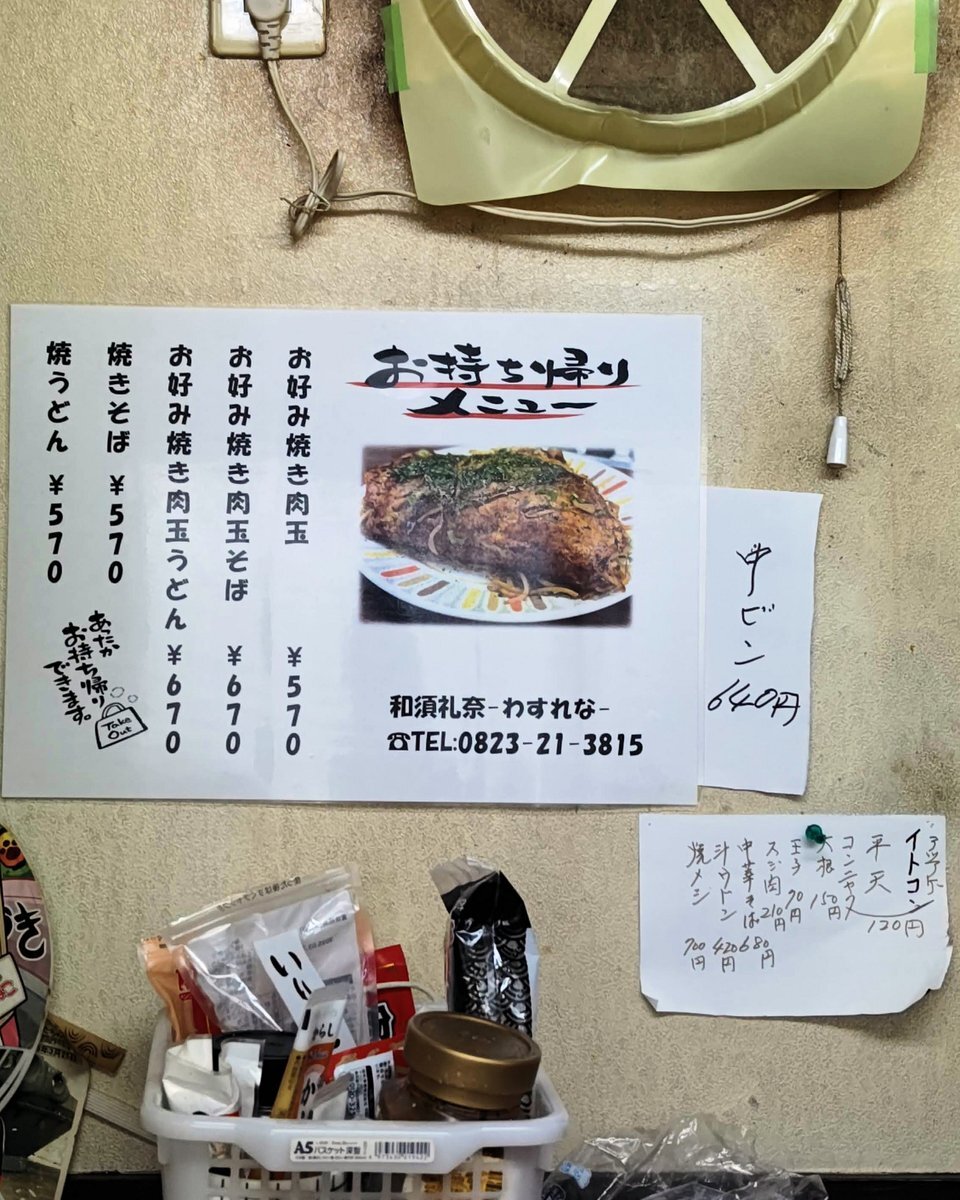 お持ち帰り
メニュー
お好み焼き肉玉 ¥570
お好み焼き肉玉そば ¥670
お好み焼き肉玉うどん ¥670
焼きそば ¥570
焼うどん ¥570
あったか
お持ち帰り
できます。
Take
Out
和須礼奈-わすれな-
☎TEL:0823-21-3815
中ビン
640円
アツアゲ
イトコン
平天
コンニャク
120円
大根 150円
玉子 90円
スジ肉 210円
中華そば 680円
汁ウドン 420円
焼メシ 700円
A5 バスケット深型